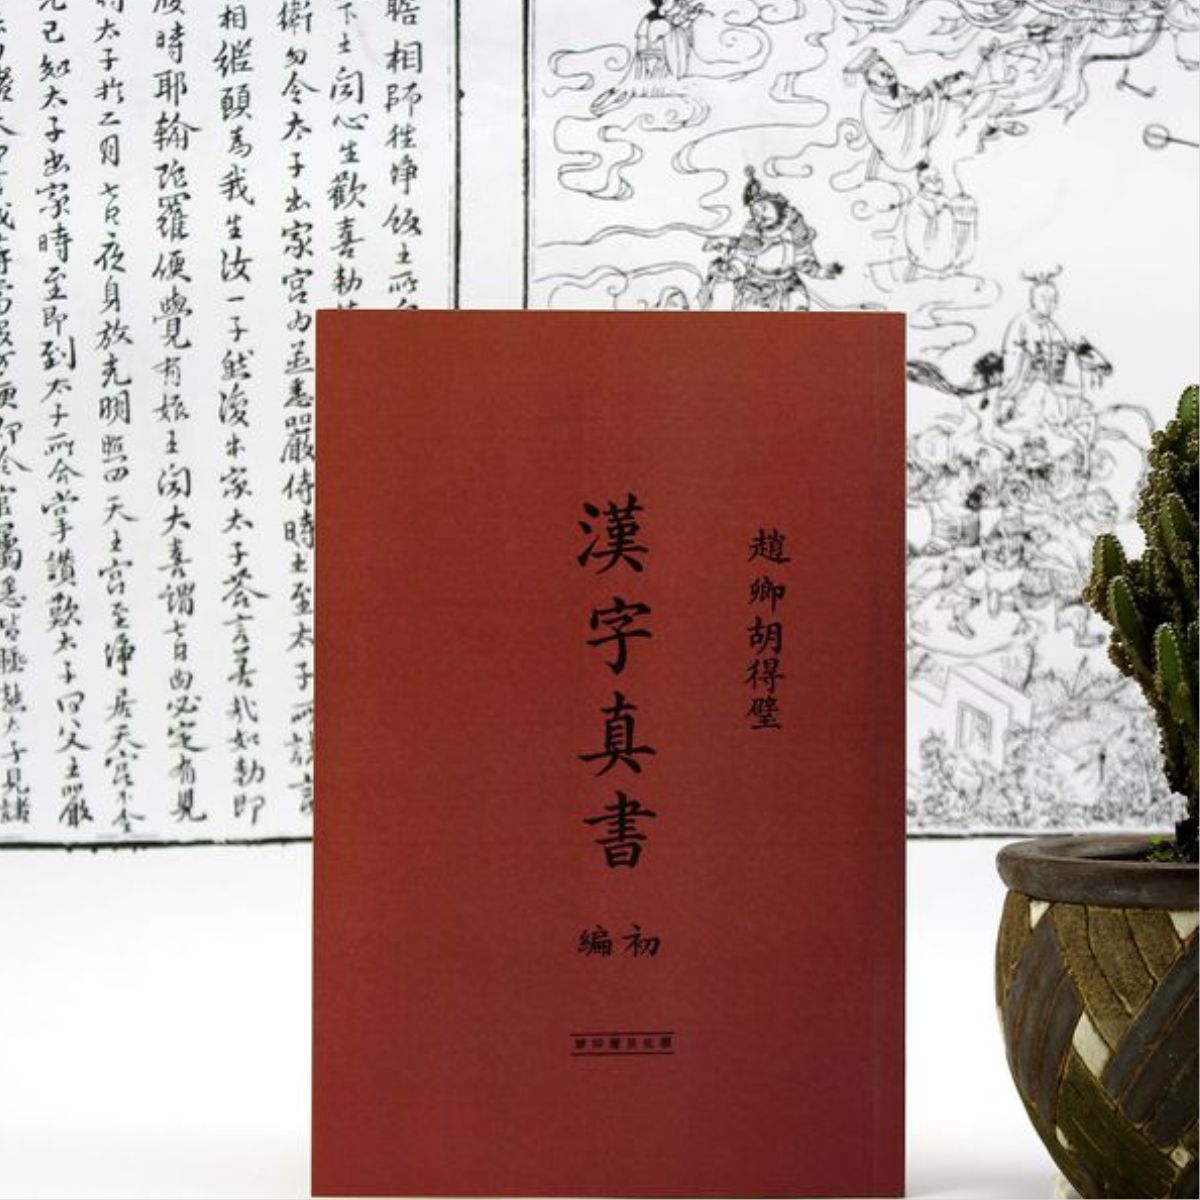 瞻相師往淨飯王所白
下王聞心生歡喜勅
衛勿令太子出家宮內並悉嚴侍時王至太子所語言
相繼願為我生汝一子然後出家太子答言善哉如勅即
時耶輸陀羅便覺有娠王聞大喜謂七日內必定有見
太子於二月七日夜身放光明照四天王宮至淨居天宮不令
已知太子出家時至即到太子所合掌讚歎太子曰父王嚴
我等當設方便即令官屬悉皆睡熟太子見諸
趙卿胡得璧
漢字真書
初編